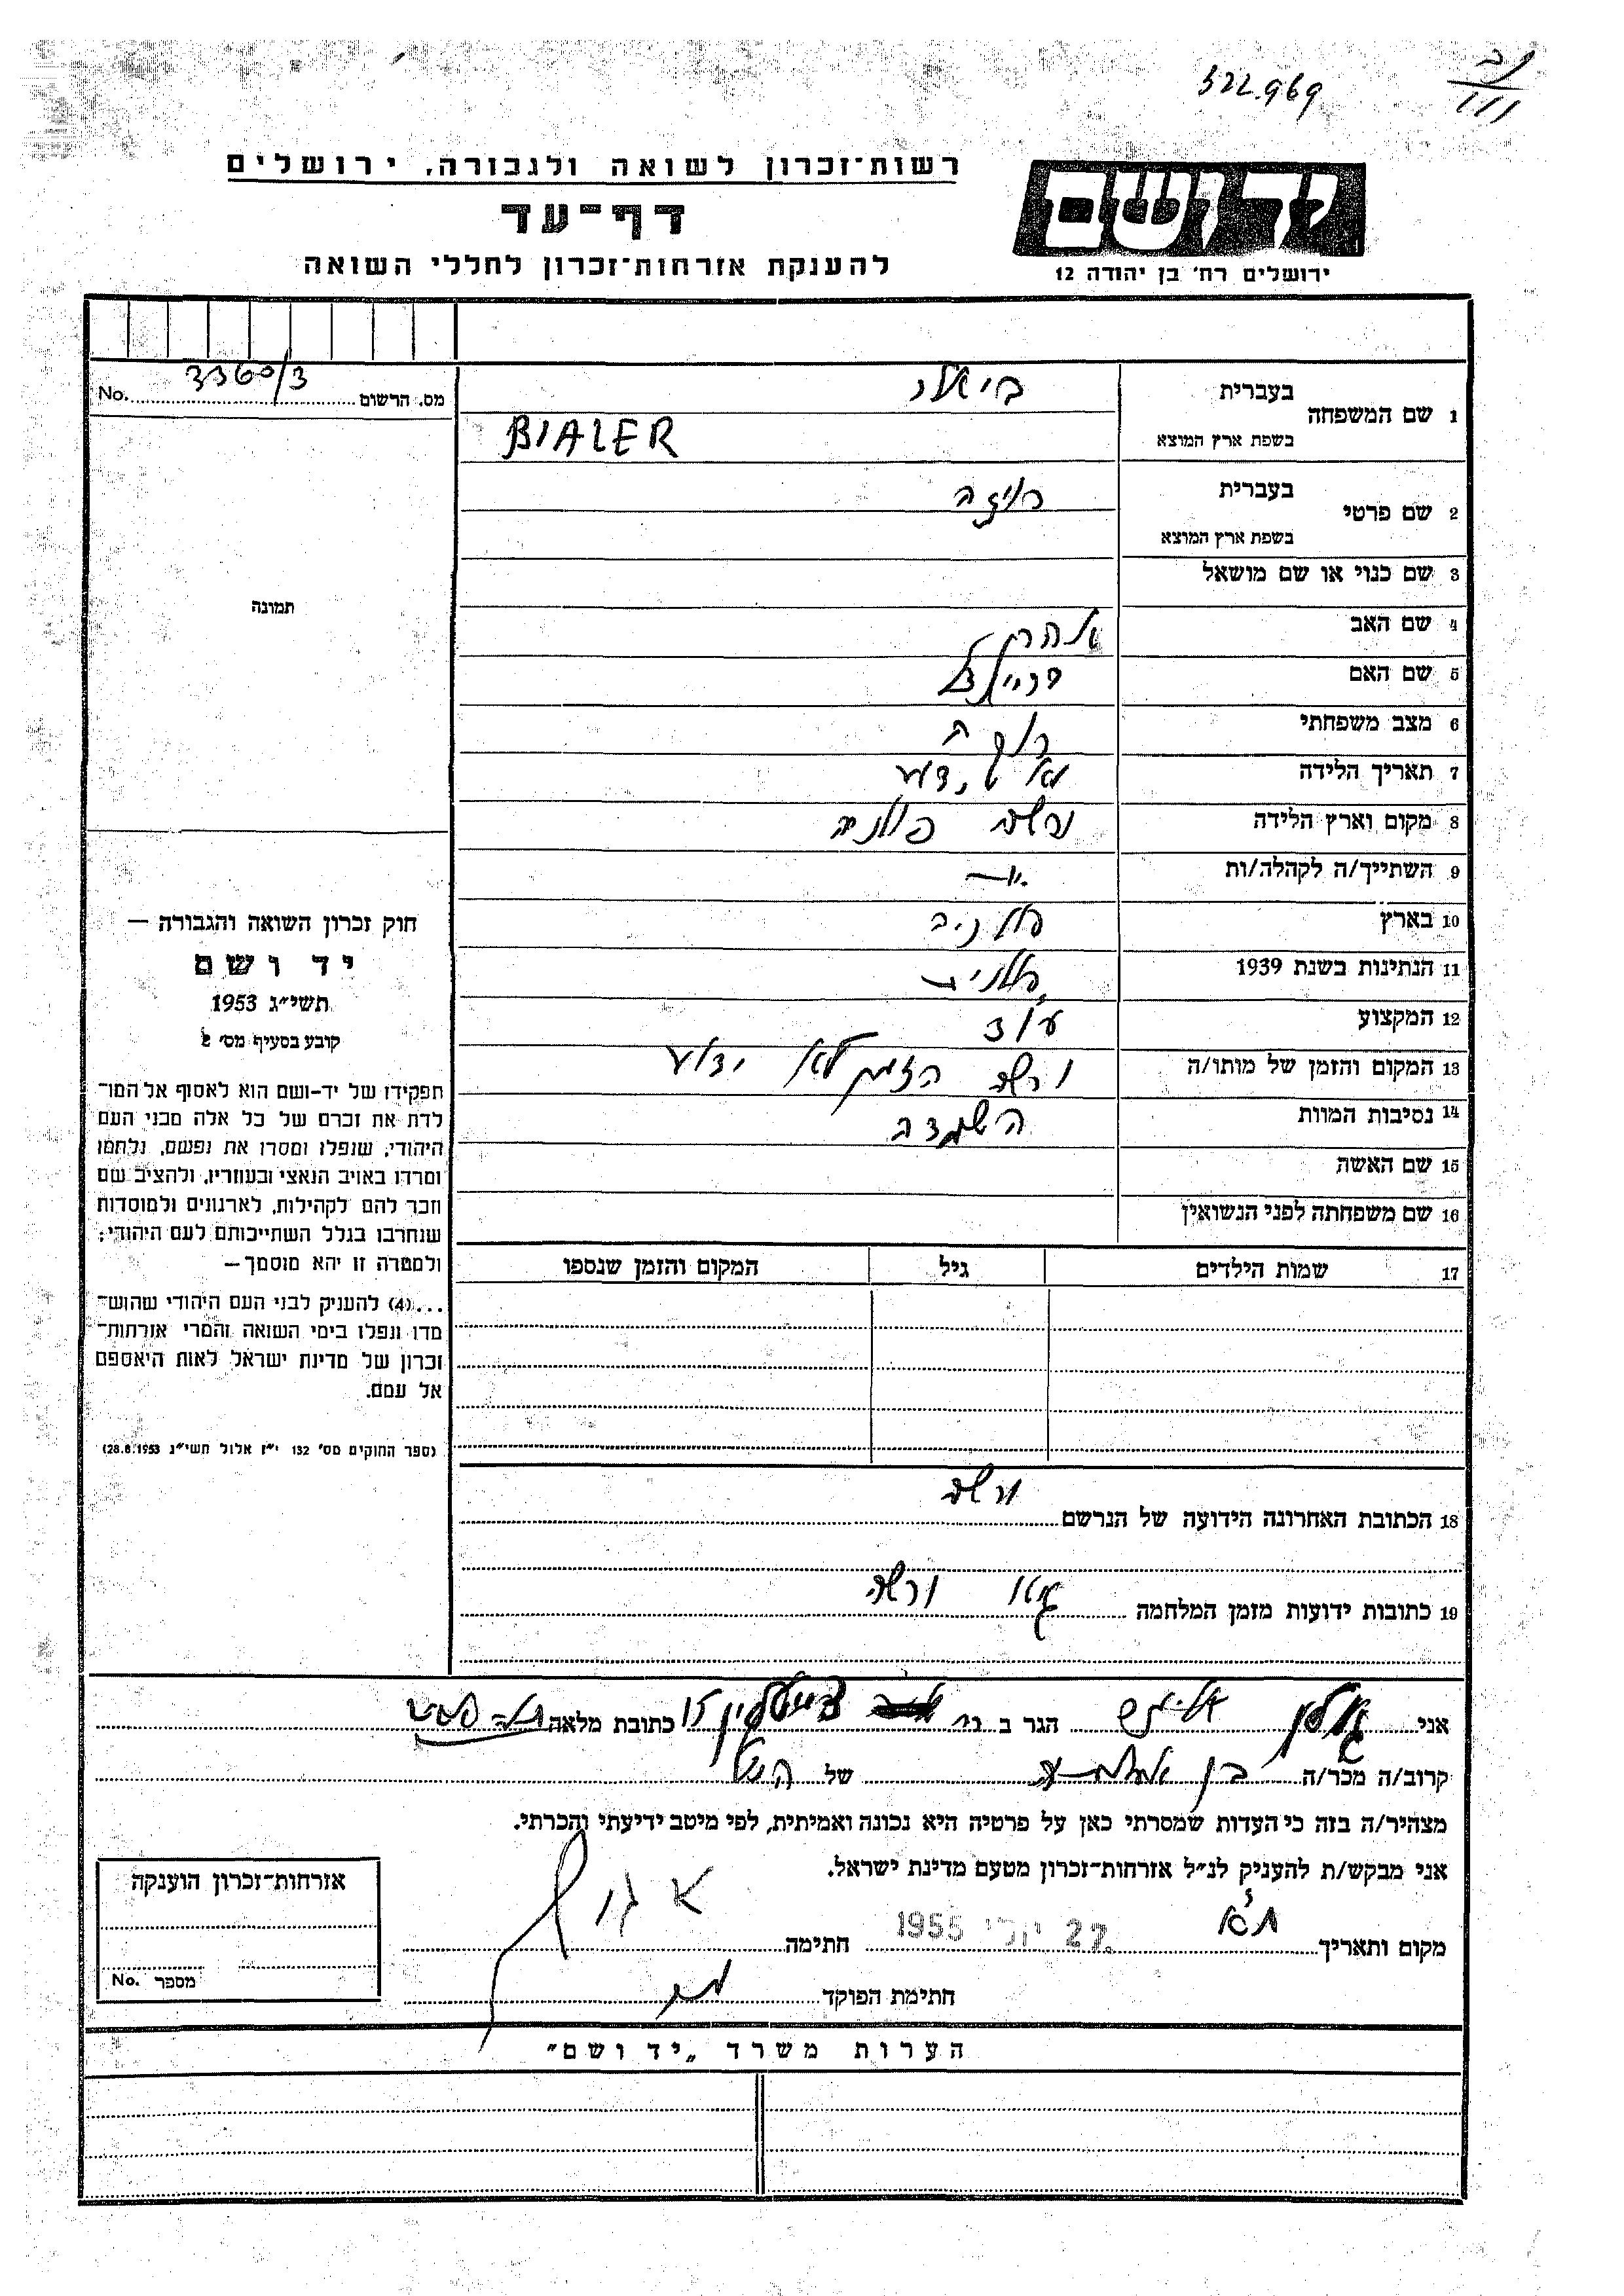 522.969
רשות־זכרון לשואה ולגבורה, ירושלים
דף־עד
להענקת אזרחות־זכרון לחללי השואה
יד ושם
ירושלים רח' בן יהודה 12
מס. הרשום 3360/3 No.
1 שם המשפחה
בעברית ביאלר
בשפת ארץ המוצא BIALER
2 שם פרטי
בעברית רויזה
בשפת ארץ המוצא
3 שם כנוי או שם מושאל
4 שם האב אהרן
5 שם האם
6 מצב משפחתי רוקה
7 תאריך הלידה לא ידוע
8 מקום וארץ הלידה ורשה פולניה
9 השתייך/ה לקהלה/ות
10 בארץ פולניה
11 הנתינות בשנת 1939 פולנית
12 המקצוע
13 המקום והזמן של מותו/ה ורשה הזמן לא ידוע
14 נסיבות המוות השמדה
15 שם האשה
16 שם משפחתה לפני הנשואין
17 שמות הילדים גיל המקום והזמן שנספו
18 הכתובת האחרונה הידועה של הנרשם ורשה
19 כתובות ידועות מזמן המלחמה גטו ורשה
תמונה
חוק זכרון השואה והגבורה —
יד ושם
תשי״ג 1953
קובע בסעיף מס' 2
תפקידו של יד-ושם הוא לאסוף אל המו־
לדת את זכרם של כל אלה מבני העם
היהודי, שנפלו ומסרו את נפשם, נלחמו
ומרדו באויב הנאצי ובעוזריו, ולהציב שם
וזכר להם לקהילות, לארגונים ולמוסדות
שנחרבו בגלל השתייכותם לעם היהודי;
ולמטרה זו יהא מוסמך —
...(4) להעניק לבני העם היהודי שהוש־
מדו ונפלו בימי השואה והמרי אזרחות־
זכרון של מדינת ישראל לאות היאספם
אל עמם.
(ספר החוקים מס' 132 י״ז אלול תשי״ג 28.8.1953)
אני הגר ב כתובת מלאה
קרוב/ה מכר/ה בן של
מצהיר/ה בזה כי העדות שמסרתי כאן על פרטיה היא נכונה ואמיתית, לפי מיטב ידיעתי והכרתי.
אני מבקש/ת להעניק לנ״ל אזרחות־זכרון מטעם מדינת ישראל.
מקום ותאריך ת״א 27 יוני 1955 חתימה
חתימת הפוקד
אזרחות־זכרון הוענקה
מספר No.
הערות משרד „יד ושם״